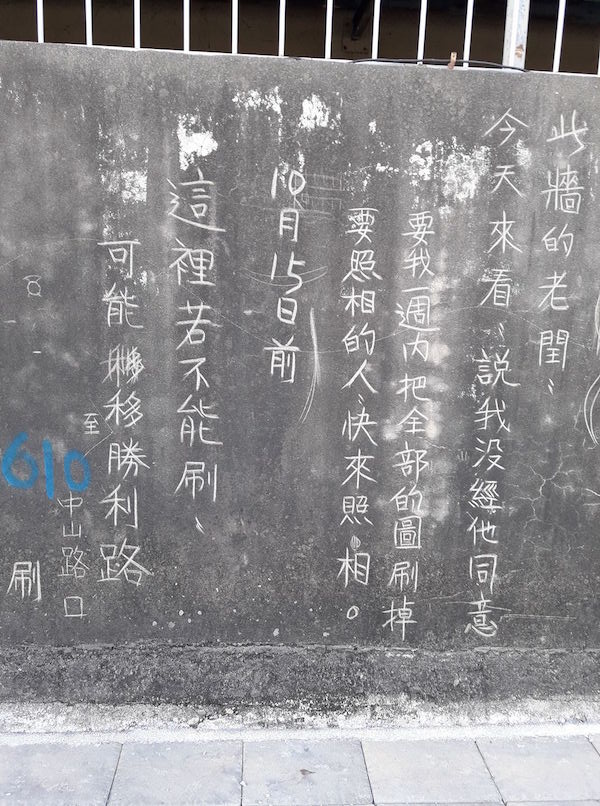 此牆的老閏〻
今天來看〻說我没經他同意
要我一週内把全部的圖刷掉
要照相的人〻快來照相。
10月15日前
這裡若不能刷、
可能移勝利路
至中山路口
刷
610